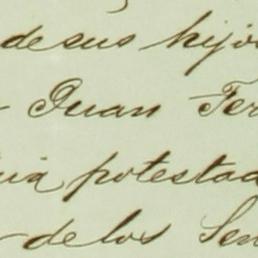 de sus hijo
Juan Fer
ria potestad
de los Señ